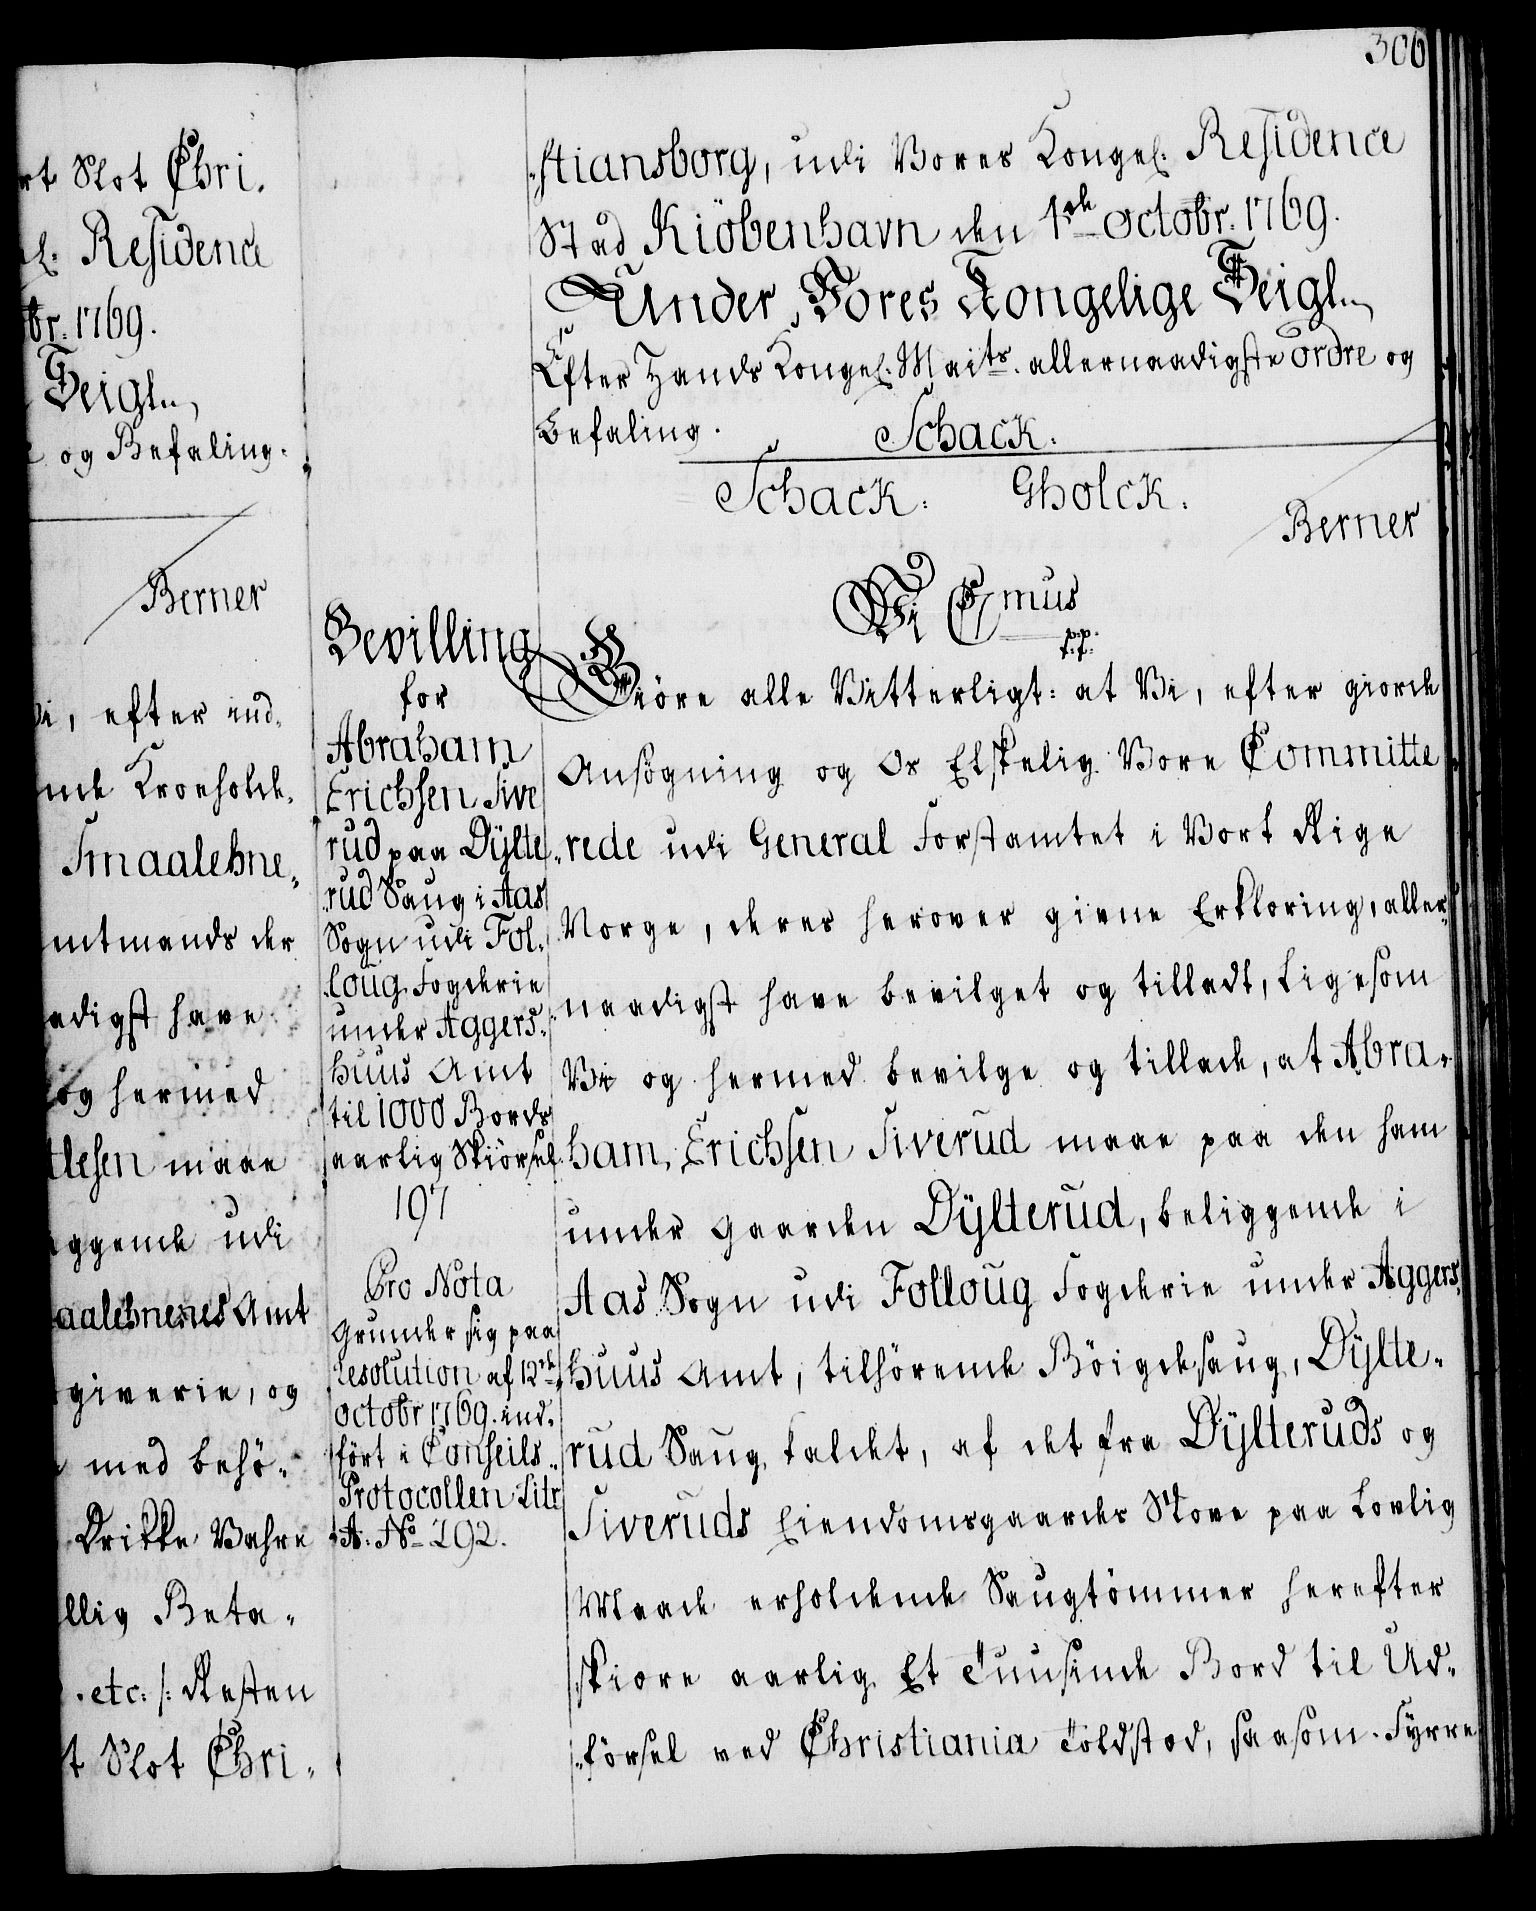 306
rt Slot Chri„
el. Residence
br. 1769.
Seigl.
og Befaling.
Berner
Vi, efter ind„
nde Kronholde„
Smaalehne„
mtmands der
adigst have
og hermed
tlesen maae
ggende udi
aalehnenes Amt
giverie, og
med behö„
Drikke Vahre
llig Beta„
etc: /: Resten
t Slot Chri„
Bevilling
for
Abraham
Erichsen Sive
rud paa Dÿlte„
rud Saug i Aas
Sogn udi Fol„
loug Fogderie
under Aggers„
huus Amt
til 1000 Bords
aarlig Skiörsel
197
Pro Nota
grunder sig paa
Resolution af 12te
octobr 1769. ind„
fört i Conseils„
Protocollen Litr
A. No 292.
„stiansborg, udi Vores Kongel. Residence
Stad Kiöbenhavn den 1ste Octobr. 1769.
Under Vores Kongelige Seigl.
Efter Hands Kongel. Maits. allernaadigste ordre og
Befaling. Schack.
Schack. Gholck.
Berner
Vi C7mus
p.p.
Giöre alle Vitterligt: at Vi, efter giorde
Ansögning og Os Elskelig Vore Committe
„rede udi General Forstamtet i Vort Rige
Norge, deres herover givne Erklæring, aller„
„naadigst have bevilget og tilladt, ligesom
Vi og hermed bevilge og tillade, at Abra„
ham Erichsen Siverud maae paa den ham
under Gaarden Dÿlterud, beliggende i
Aas Sogn udi Folloug Fogderie under Aggers„
huus Amt, tilhörende Böigdesaug, Dÿlte„
rud Saug kaldet, af det fra Dÿlteruds og
Siveruds Eiendomsgaardes Skove paa lovlig
Maade erholdende Saugtömmer herefter
skiære aarlig Et Tuusinde Bord til Ud„
„försel ved Christiania Toldsted, saasom Fyrre